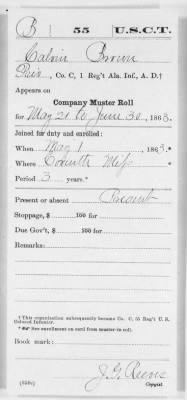 B 55 U.S.C.T.
Calvin Brown
Priv., Co. C, 1 Reg't Ala. Inf., A. D.†
Appears on
Company Muster Roll
for May 21 to June 30, 1863.
Joined for duty and enrolled:
When May 1, 1863.*
Where Corinth Miss
Period 3 years.*
Present or absent Present
Stoppage, $ 100 for
Due Gov't, $ 100 for
Remarks:
† This organization subsequently became Co. C, 55 Reg't U. S. Colored Infantry.
* See enrollment on card from muster-in roll.
Book mark:
J. G. Reens
(858c) Copyist.